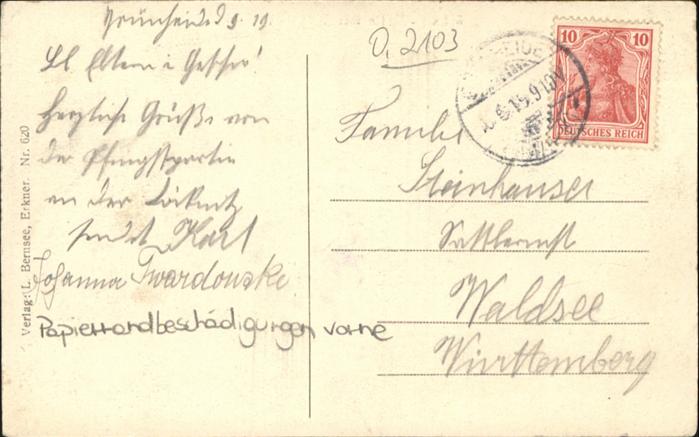 Grünheide d 9. 19
O, 2103
Lb Eltern u Geschw!
Herzliche Grüße von
der Pfingstpartie
an der Löcknitz
sendet Karl
Johanna Twardowske
Papierrandbeschädigungen vorne
Verlag: L. Bernsee, Erkner. Nr. 620
10 10
DEUTSCHES REICH
HEIDE
Familie
Steinhauser
Sattlermstr
Waldsee
Württemberg